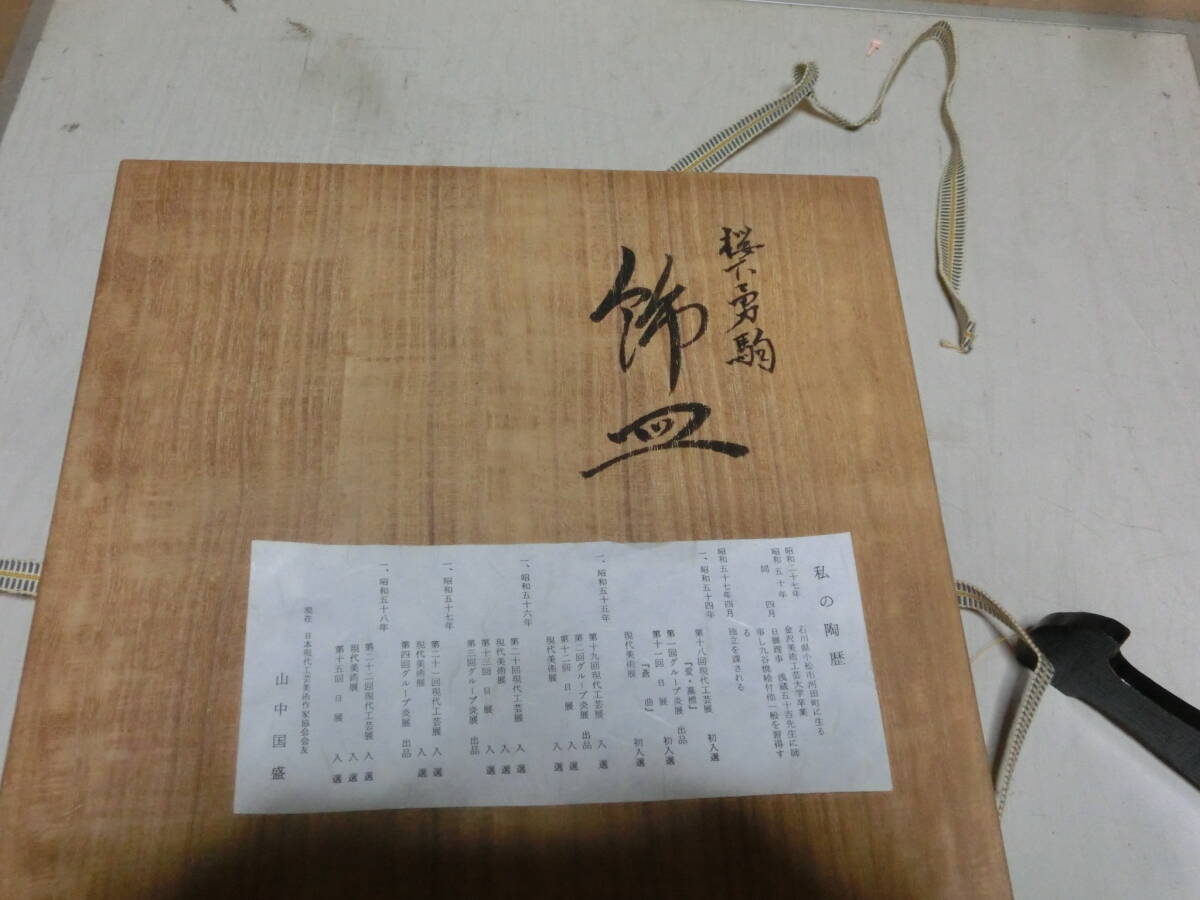 桜下勇駒
飾皿
私の陶歴
昭和二十七年 石川県小松市河田町に生る
昭和五十年 金沢美術工芸大学卒業
同 四月 日展理事 浅蔵五十吉先生に師
事し九谷焼絵付他一般を習得す
る
昭和五十七年四月 独立を課される
一、昭和五十四年 第十八回現代工芸展 初入選
『愛・高標』
第一回グループ炎展 出品
第十一回 日展 初入選
『蒼曲』
現代美術展 初入選
一、昭和五十五年 第十九回現代工芸展 入選
第二回グループ炎展 出品
第十二回 日展 入選
現代美術展 入選
一、昭和五十六年 第二十回現代工芸展 入選
現代美術展 入選
第十三回 日展 入選
第三回グループ炎展 出品
一、昭和五十七年 第二十一回現代工芸展 入選
現代美術展 入選
第四回グループ炎展 出品
一、昭和五十八年 第二十二回現代工芸展 入選
現代美術展 入選
第十五回 日展 入選
現在 日本現代工芸美術作家協会会友
山中国盛